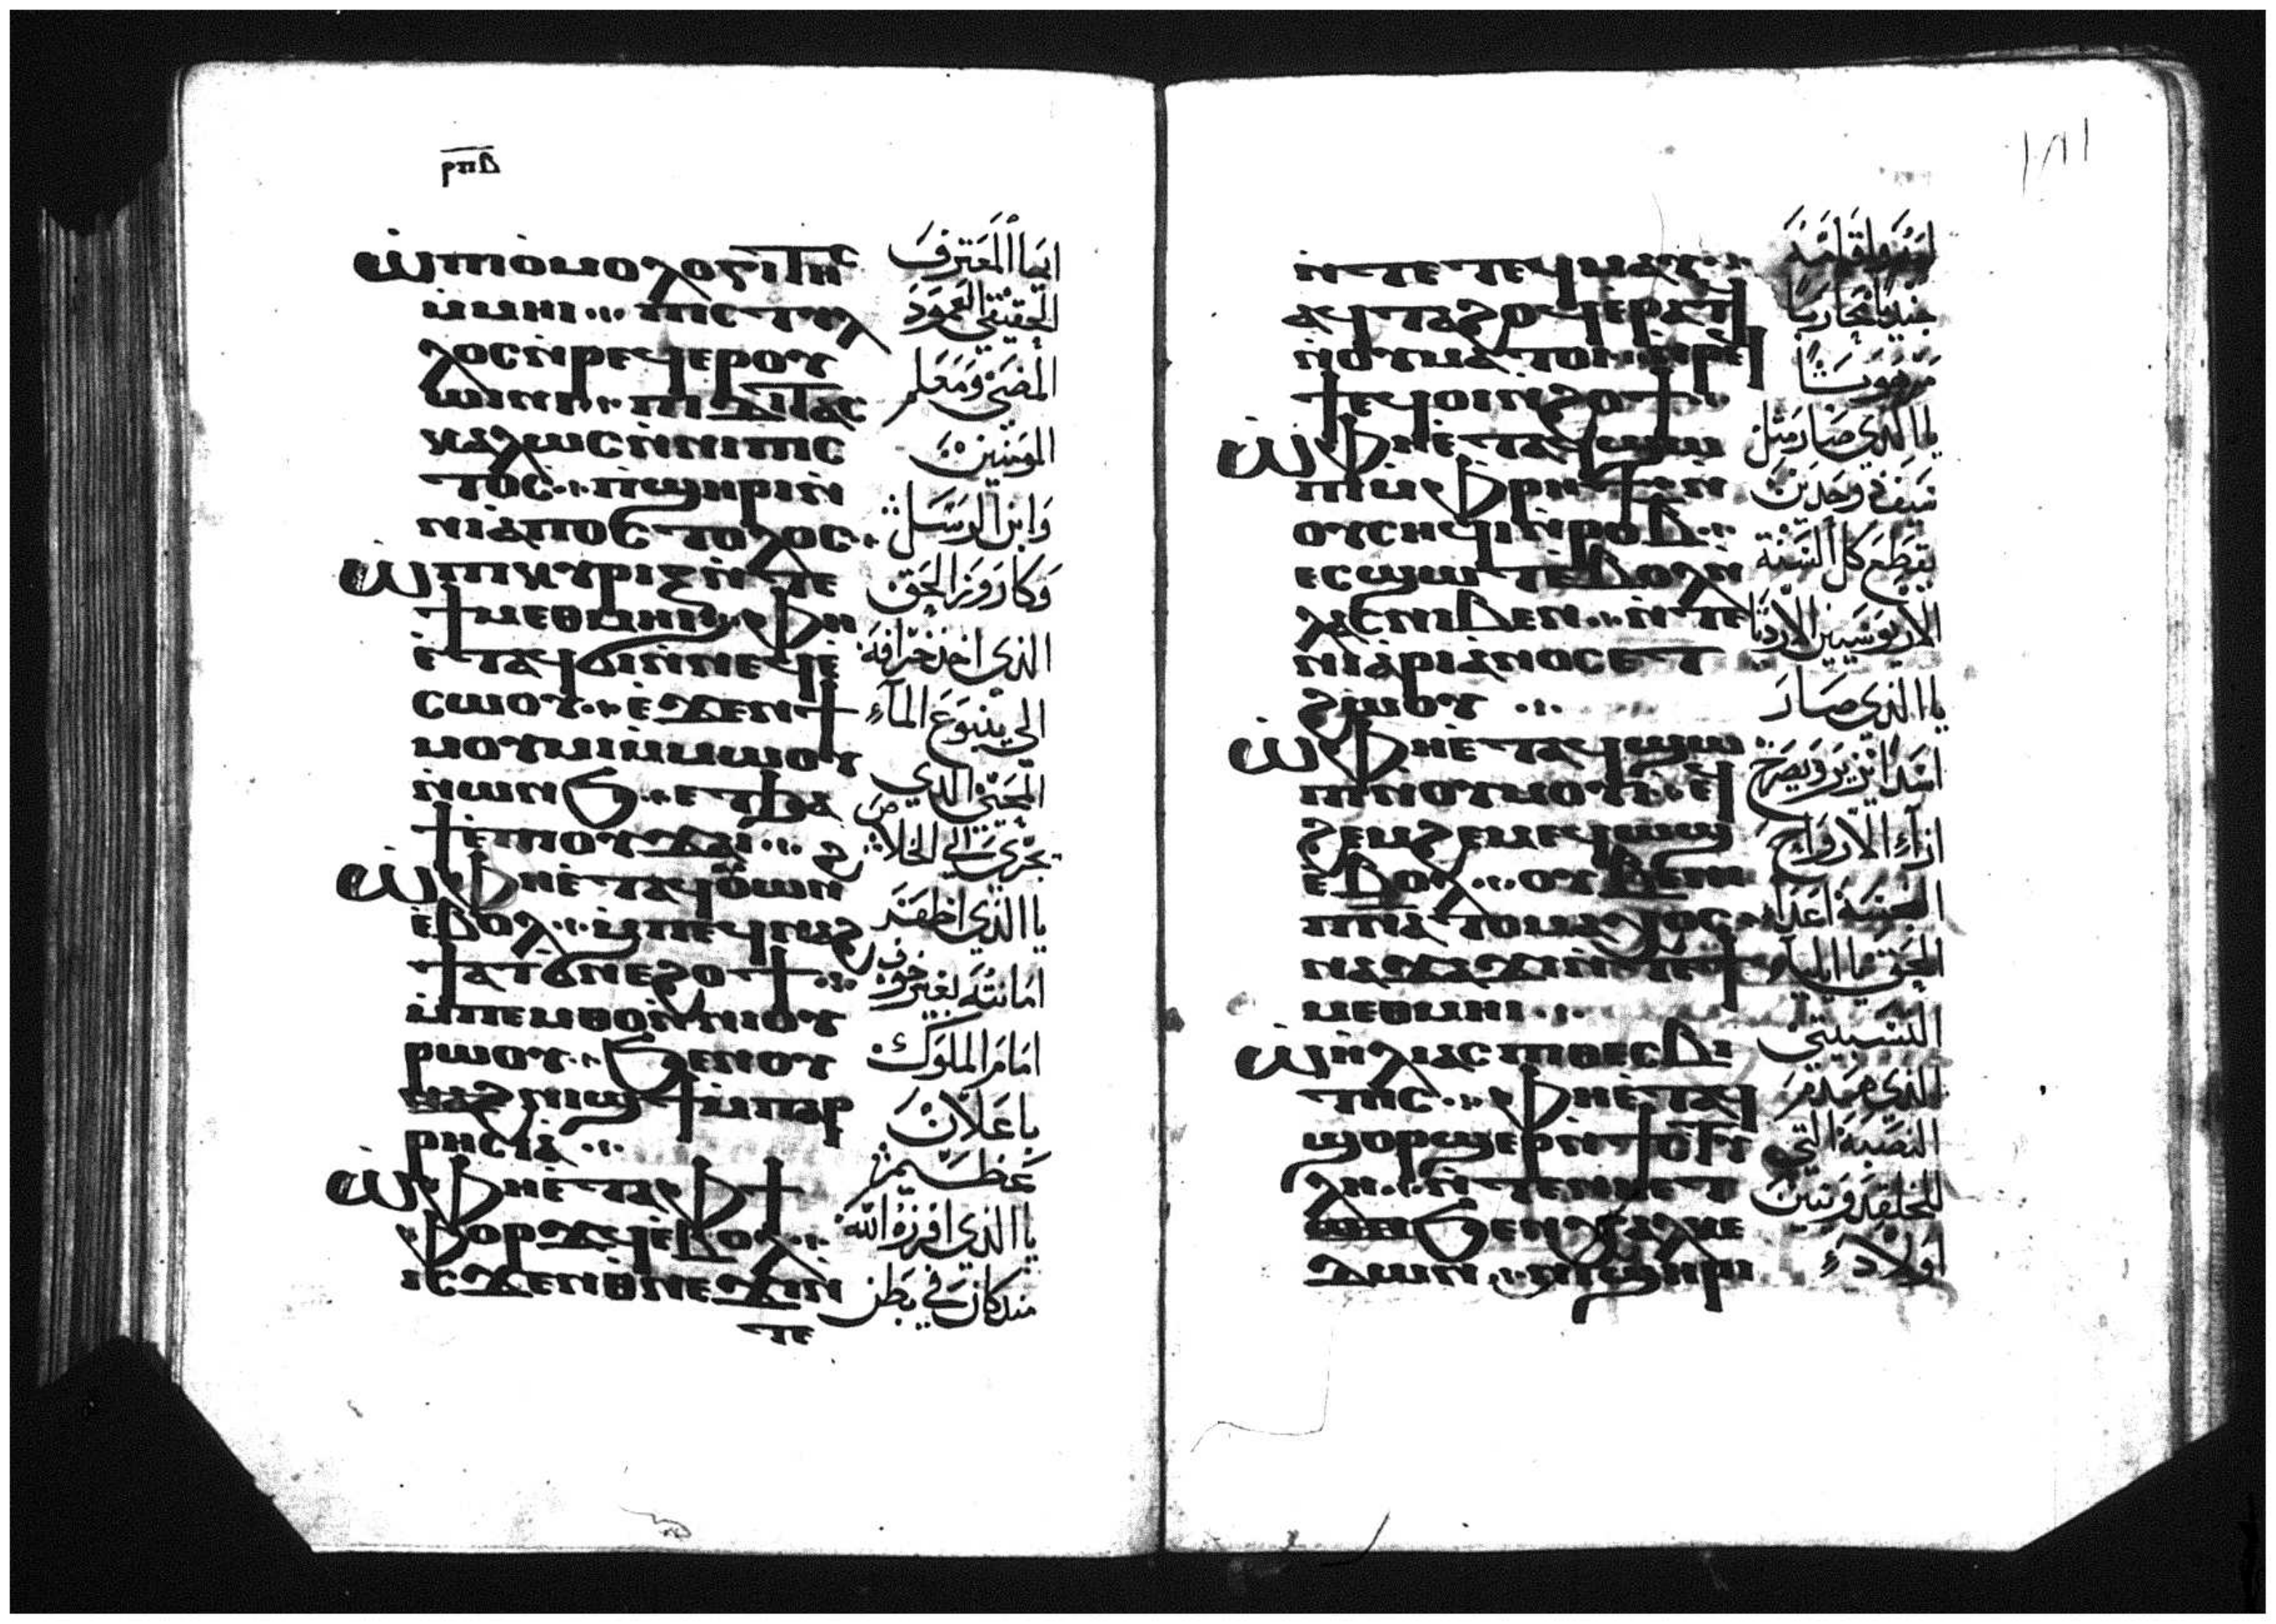 ⲣⲡⲃ
ⲱ̇ ⲡⲓⲟ̀ⲙⲟⲗⲟⲅⲓⲧⲏⲥ
ⲙ̀ⲙⲏⲓ ⲡⲓⲥⲧⲩⲗ
ⲗⲟⲥ ⲛ̀ⲣⲉϥⲉⲣⲟⲩ
ⲱⲓⲛⲓ ⲡⲓⲇⲓⲇⲁⲥ
ⲕⲁⲗⲱⲥ ⲛ̀ⲛⲓⲡⲓⲥ
ⲧⲟⲥ ⲡ̀ϣⲏⲣⲓ ⲛ̀
ⲛⲓⲁⲡⲟⲥⲧⲟⲗⲟⲥ
ⲱ̇ ⲡⲓⲕⲩⲣⲓⲝ ⲛ̀ⲧⲉ
ϯⲙⲉⲑⲙⲏⲓ ⲫⲏ
ⲉ̀ⲧⲁϥϭⲓ ⲛ̀ⲛⲉϥⲉ̀
ⲥⲱⲟⲩ ⲉ̀ϫⲉⲛ ϯ
ⲙⲟⲩⲙⲓ ⲙ̀ⲙⲱⲟⲩ
ⲛ̀ⲱⲛϧ ⲉⲧϧⲁ
ϯ ⲉ̀ⲡⲓⲟⲩϫⲁⲓ
ⲱ̇ ⲫⲏⲉ̀ⲧⲁϥⲟ̀ⲱⲛ
ⲉ̀ⲃⲟⲗ ⲙ̀ⲡⲉϥⲛⲁϩ
ϯ ⲁⲧϭⲛⲉ ϩⲟϯ
ⲙ̀ⲡⲉⲙⲑⲟ ⲛ̀ⲛⲓⲟⲩ
ⲣⲱⲟⲩ ϧⲉⲛ ⲟⲩ
ⲛⲁϩⲛⲓϣϯ ⲙ̀ⲡⲁⲣ
ⲣⲏⲥⲓⲁ
ⲱ̇ ⲫⲏⲉ̀ⲧⲁ ⲫϯ
ⲫⲟⲣϫϥ ⲉ̀ⲃⲟⲗ
ⲓⲥϫⲉⲛ ⲑ̀ⲛⲉϫⲓ ⲛ̀
ⲧⲉ
ايها المعترف
الحقيقي العمود
المضي ومعلم
المومنين
وابن الرسل
وكاروز الحق
الذي اخذ خرافه
الي ينبوع المآء
المحيي الذي
يجري الي الخلاص
يا الذي اظهر
امانته بغير خوف
امام الملوك
باعلان
عظيم
يا الذي افرزه الله
منذ كان في بطن
١٨١
ⲛ̀ⲧⲉ ⲧⲉϥⲙⲁⲩ
ⲁϥⲧⲁϩⲟϥ ⲉⲣⲁⲧϥ
ⲛ̀ⲟⲩⲙⲁⲧⲟⲓ ⲛ̀ⲣⲉϥ
ϯ ⲉϥⲟⲓ ⲛ̀ϩⲟϯ
ⲱ̇ ⲫⲏⲉ̀ⲧⲁϥϣⲱ
ⲡⲓ ⲙ̀ⲫⲣⲏϯ ⲛ̀
ⲟⲩⲥⲏϥⲓ ⲛ̀ⲣⲟⲃ
ⲉⲥϣⲱⲧ ⲉ̀ⲃⲟⲗ ⲛ̀
ⲗⲁⲥ ⲛⲓⲃⲉⲛ ⲛ̀ⲧⲉ
ⲛⲓⲁⲣⲓⲁⲛⲟⲥ ⲉⲧ
ϩⲱⲟⲩ
ⲱ̇ ⲫⲏⲉ̀ⲧⲁϥϣⲱ
ⲡⲓ ⲛ̀ⲟⲩⲙⲟⲩⲓ ⲉϥ
ϩⲉⲙϩⲉⲙ ⲉϥⲱϣ
ⲉ̀ⲃⲟⲗ ⲟⲩⲃⲉ ⲛⲓ
ⲡⲛⲁ ⲧⲟⲙⲁⲭⲟⲥ
ⲛⲁϫⲁϫⲓ ⲛ̀ⲧⲉ ϯ
ⲙⲉⲑⲙⲏⲓ
ⲱ̇ ⲏⲗⲓⲁⲥ ⲡⲓⲑⲉⲥⲃⲓ
ⲧⲏⲥ ⲫⲏⲉ̀ⲧⲁϥ
ϣⲟⲣϣⲉⲣ ⲛ̀ϯⲥⲧⲏ
ⲗⲏ ⲛ̀ⲧⲉ ⲛⲉⲧ
ϧⲉⲛ ⲭⲁⲗⲕⲉ
ⲇⲱⲛ ⲛⲓϣⲏⲣⲓ
امه واقامه
جنديا محاربا
مرهوبا
يا الذي صار مثل
سيف ذي حدين
يقطع كل السنة
الاريوسيين الاردياء
يا الذي صار
اسدا يزير ويصرخ
ازآء الارواح
النجسة اعداء
الحق يا ايليا
التسبيتي
الذي هدم
النصبة التي
للخلقدونيين
اولاد